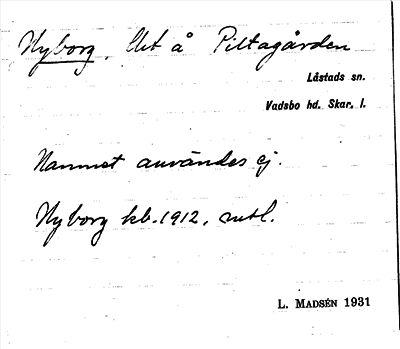 Nyborg, Uet å Piltagården
Låstads sn.
Vadsbo hd. Skar. l.
Namnet användes ej.
Nyborg kb. 1912, mtl.
L. MADSÉN 1931